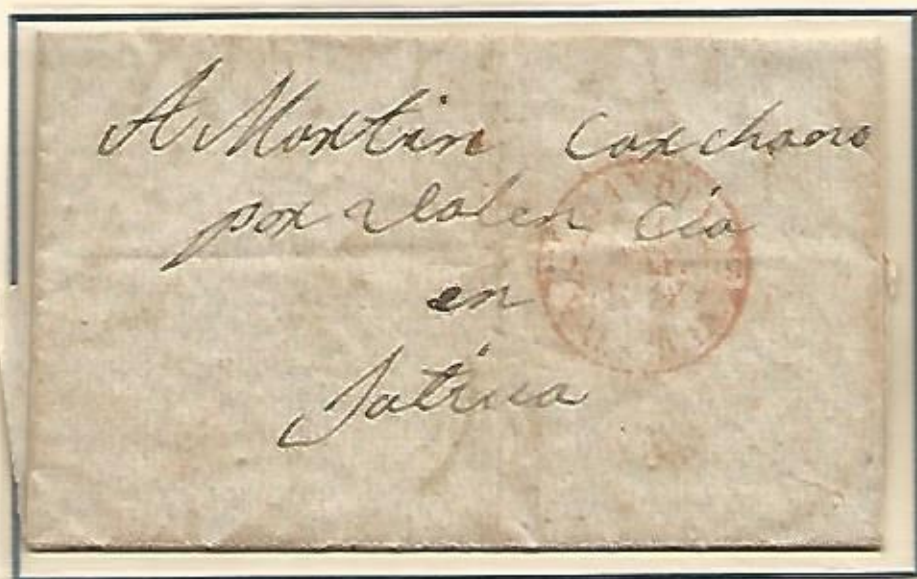 A Martin Carchano
por Valen cia
en
Jativa